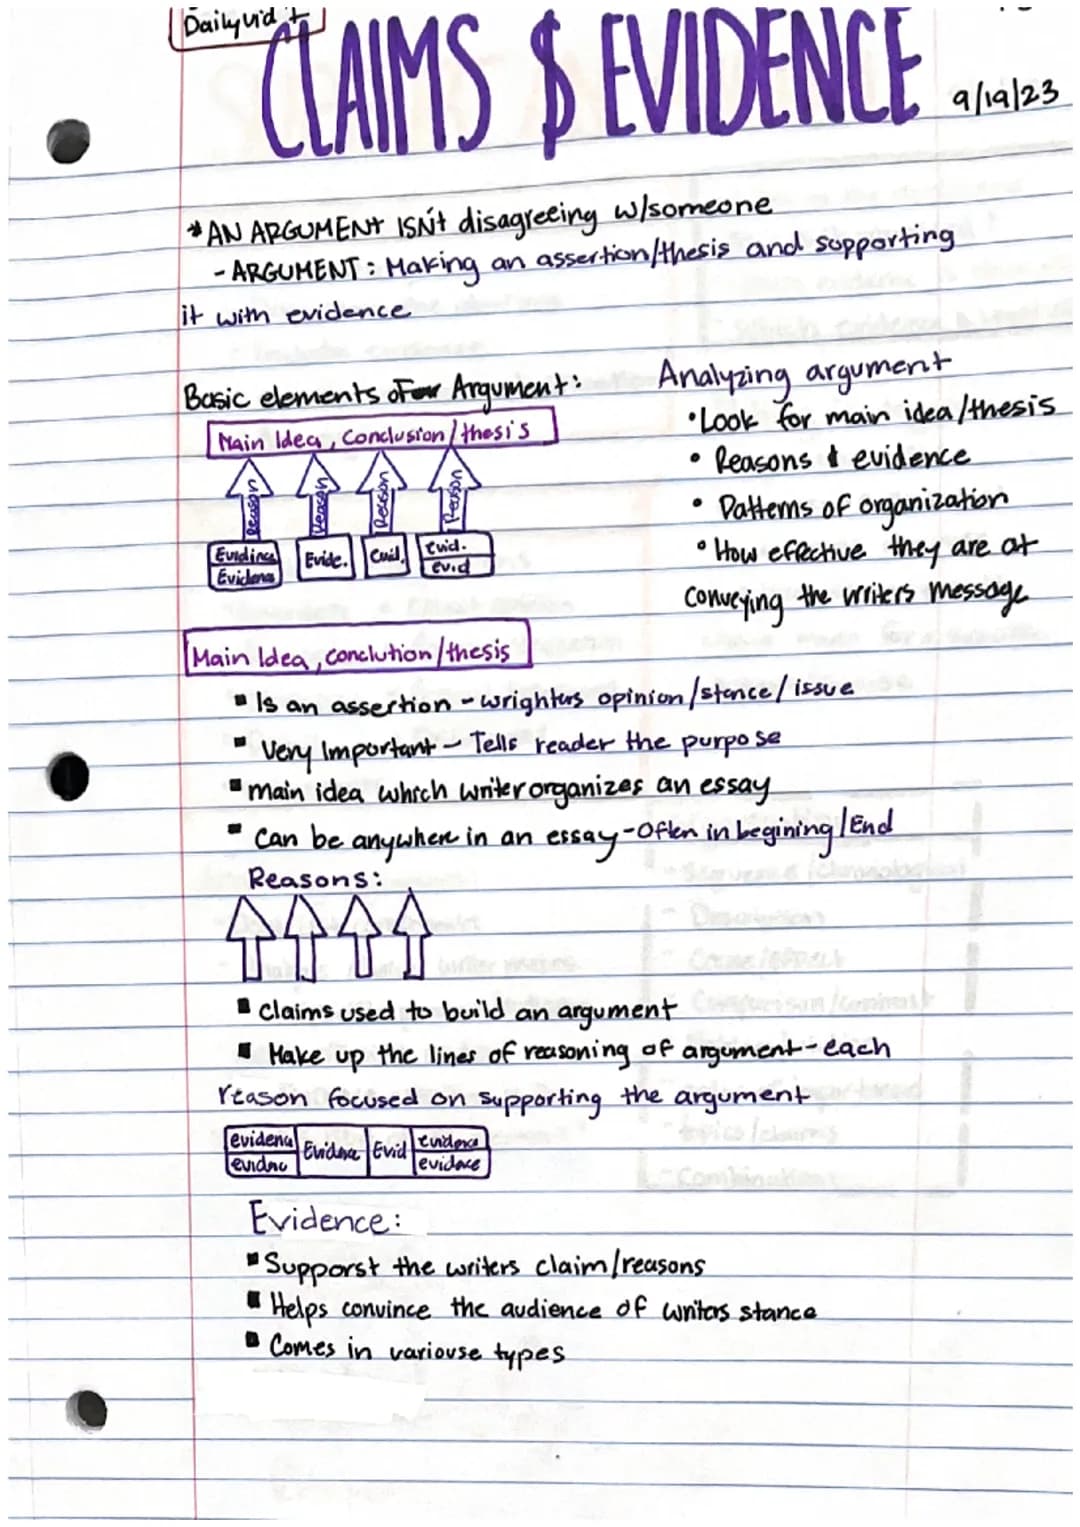 Dailyvid +
CLAIMS & EVIDENCE
9/19/23
* AN ARGUMENT ISN't disagreeing w/someone
- ARGUMENT: Making an assertion/thesis and supporting
it with evidence
Basic elements of For Argument:
Main Idea, Conclusion/thesis
Reason Reason Reason Reason
Evidince Evide. Evid. Evid.
Evidence evid
Analyzing argument
• Look for main idea/thesis
• Reasons & evidence
• Patterns of organization
• How effective they are at
conveying the writers message
Main Idea, conclution/thesis
▪ Is an assertion - wrighters opinion/stance/issue
▪ Very Important - Tells reader the purpose
▪ main idea which writer organizes an essay
▪ can be anywhere in an essay - Often in begining/End
Reasons:
▪ Claims used to build an argument
▪ Make up the lines of reasoning of argument - each
reason focused on supporting the argument
evidence Evidence Evid evidence
evidnc evidace
Evidence:
▪ Supporst the writers claim/reasons
▪ Helps convince the audience of writers stance
▪ Comes in variouse types